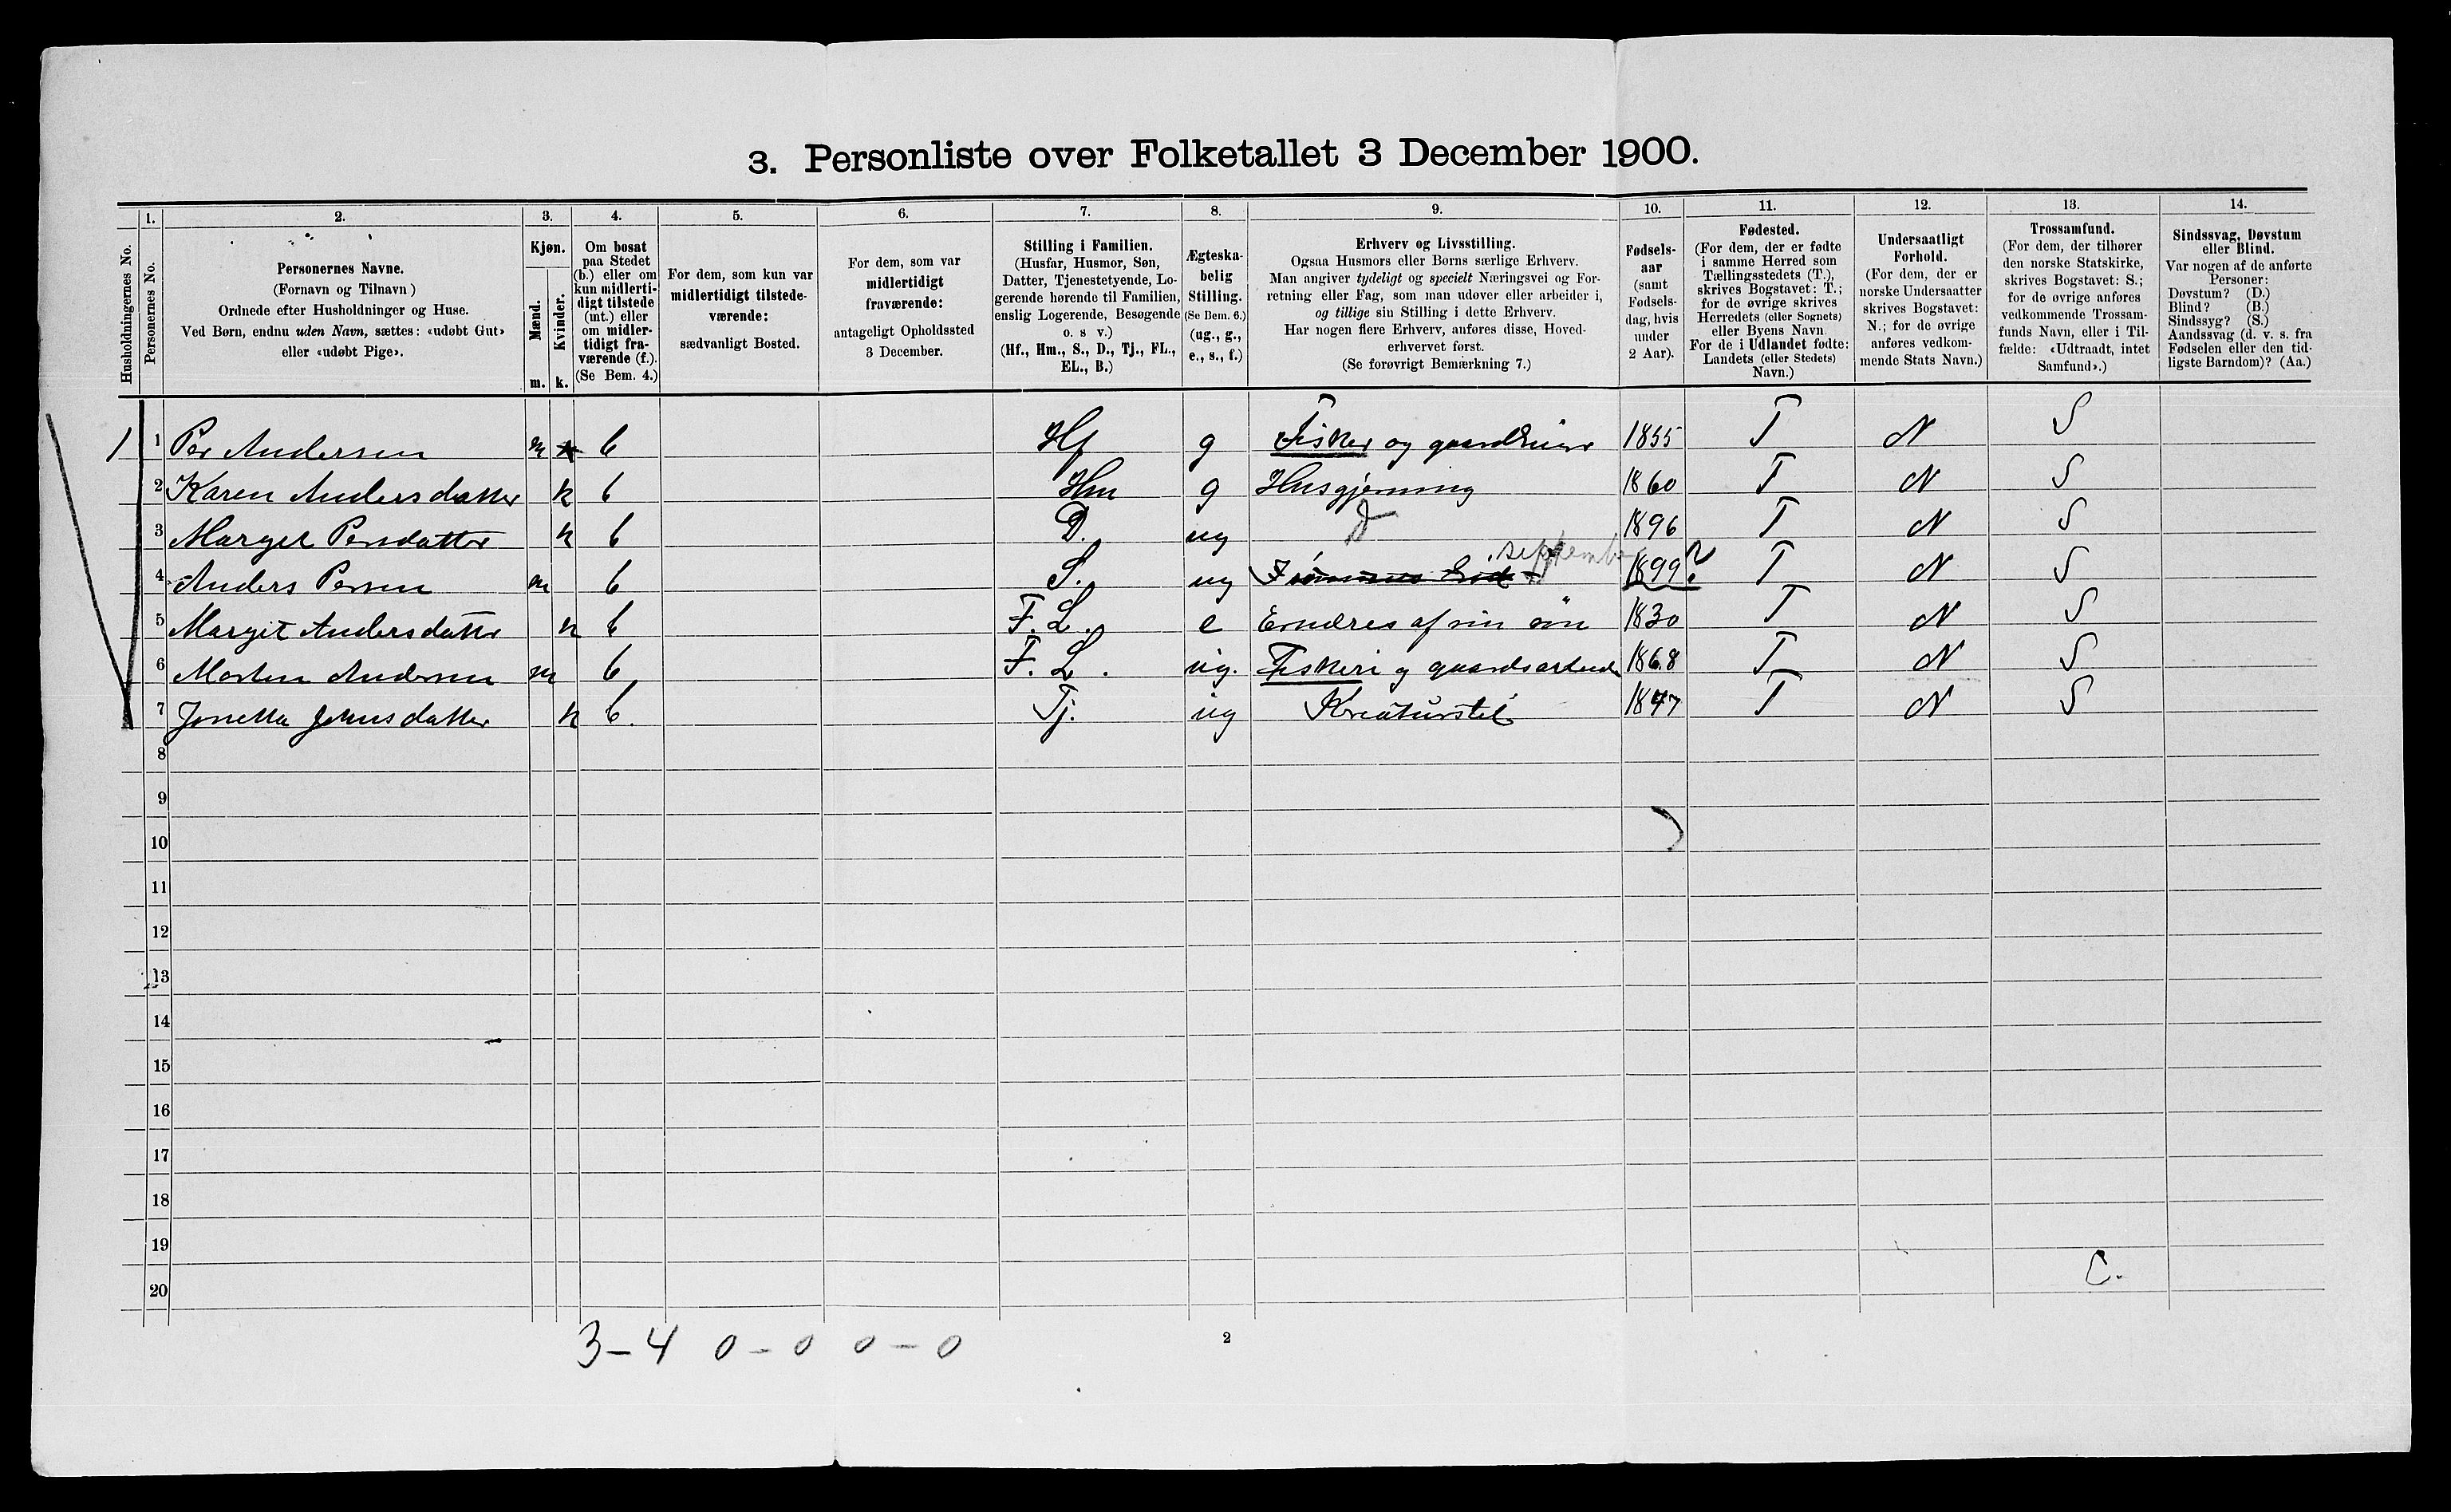 3. Personliste over Folketallet 3 December 1900.
1. 2. 3. 4. 5. 6. 7. 8. 9. 10. 11. 12. 13. 14.
Husholdningernes No.
Personernes No.
Personernes Navne.
(Fornavn og Tilnavn)
Ordnede efter Husholdninger og Huse.
Ved Børn, endnu uden Navn, sættes: «udøbt Gut»
eller «udøbt Pige».
Kjøn.
Mænd.
Kvinder.
m. k.
Om bosat
paa Stedet
(b.) eller om
kun midlerti-
digt tilstede
(mt.) eller
om midler-
tidigt fra-
værende (f.).
(Se Bem. 4.)
For dem, som kun var
midlertidigt tilstede-
værende:
sædvanligt Bosted.
For dem, som var
midlertidigt
fraværende:
antageligt Opholdssted
3 December.
Stilling i Familien.
(Husfar, Husmor, Søn,
Datter, Tjenestetyende, Lo-
gerende hørende til Familien,
enslig Logerende, Besøgende
o. s v.)
(Hf., Hm., S., D., Tj., FL.,
EL., B.)
Ægteska-
belig
Stilling.
(Se Bem. 6.)
(ug., g.,
e., s., f.)
Erhverv og Livsstilling.
Ogsaa Husmors eller Børns særlige Erhverv.
Man angiver tydeligt og specielt Næringsvei og For-
retning eller Fag, som man udøver eller arbeider i,
og tillige sin Stilling i dette Erhverv.
Har nogen flere Erhverv, anføres disse, Hoved-
erhvervet først.
(Se forøvrigt Bemærkning 7.)
Fødsels-
aar
(samt
Fødsels-
dag, hvis
under
2 Aar).
Fødested.
(For dem, der er fødte
i samme Herred som
Tællingsstedets (T.),
skrives Bogstavet: T.;
for de øvrige skrives
Herredets (eller Sognets)
eller Byens Navn.
For de i Udlandet fødte:
Landets (eller Stedets)
Navn.)
Undersaatligt
Forhold.
(For dem, der er
norske Undersaatter
skrives Bogstavet:
N.; for de øvrige
anføres vedkom-
mende Stats Navn.)
Trossamfund.
(For dem, der tilhører
den norske Statskirke,
skrives Bogstavet: S.;
for de øvrige anføres
vedkommende Trossam-
funds Navn, eller i Til-
fælde: «Udtraadt, intet
Samfund».)
Sindssvag, Døvstum
eller Blind.
Var nogen af de anførte
Personer:
Døvstum? (D.)
Blind? (B.)
Sindssyg? (S.)
Aandssvag (d. v. s. fra
Fødselen eller den tid-
ligste Barndom)? (Aa.)
1 1 Per Andersen m b Hf g Fisker og gaardbruger 1855 T N S
2 Karen Andersdatter k b Hm g Husgjerning 1860 T N S
3 Marget Persdatter k b D. ug 1896 T N S
4 Anders Persen m b S. ug september 1899 ? T N S
5 Margit Andersdatter k b F. L. e Ernæres af sin søn 1830 T N S
6 Morten Andersen m b F. L. ug. Fiskeri og gaardsarbeide 1868 T N S
7 Jonetta Johnsdatter k b. Tj. ug Kreaturstel 1847 T N S
8
9
10
11
12
13
14
15
16
17
18
19
20
C.
3-4 0-0 0-0
2